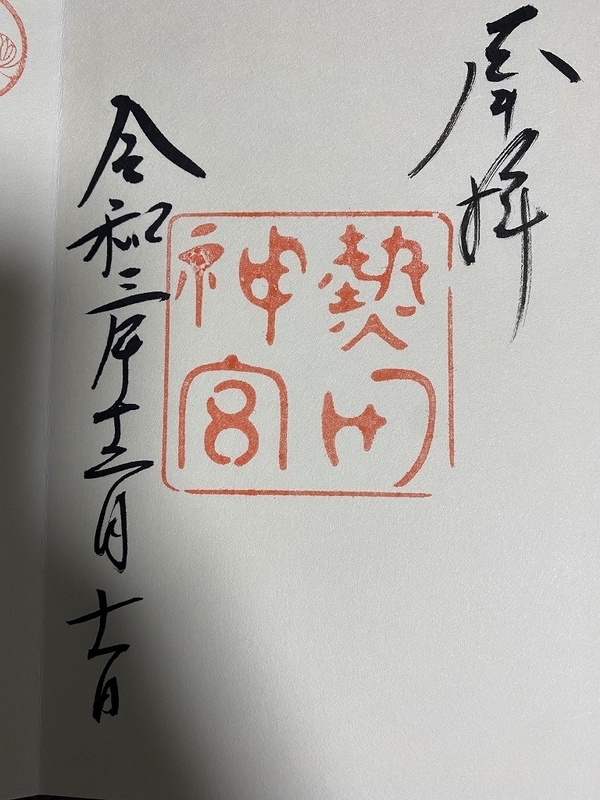 奉拝
熱田
神宮
令和三年十二月十一日